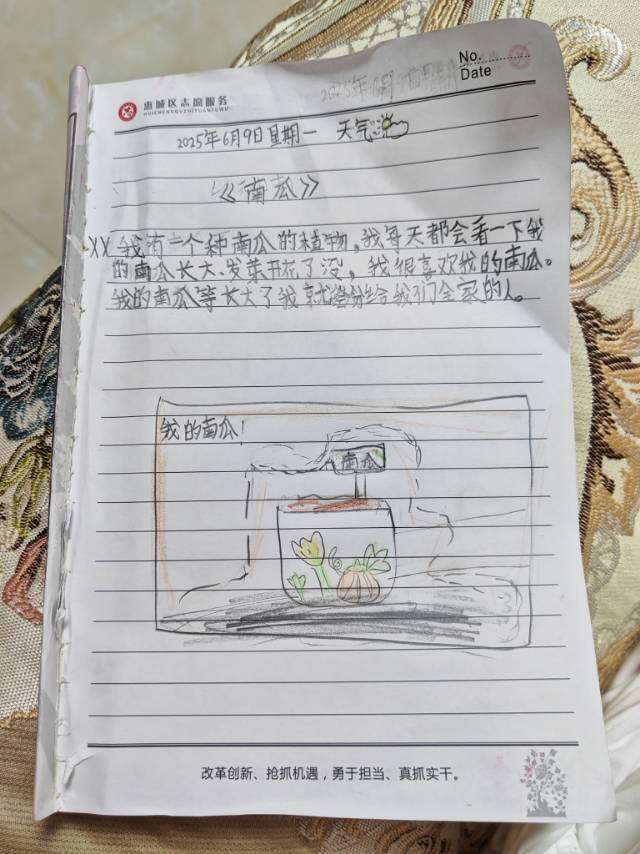 惠城区志愿服务
HUICHENGQUZHIYUANFUWU
No.
Date
2025年6月
2025年6月9日星期一 天气:
《南瓜》
XX我有一个种南瓜的植物,我每天都会看一下我
的南瓜长大、发芽开花了没,我很喜欢我的南瓜。
我的南瓜等长大了我就会分给我们全家的人。
我的南瓜!
南瓜
改革创新、抢抓机遇,勇于担当、真抓实干。